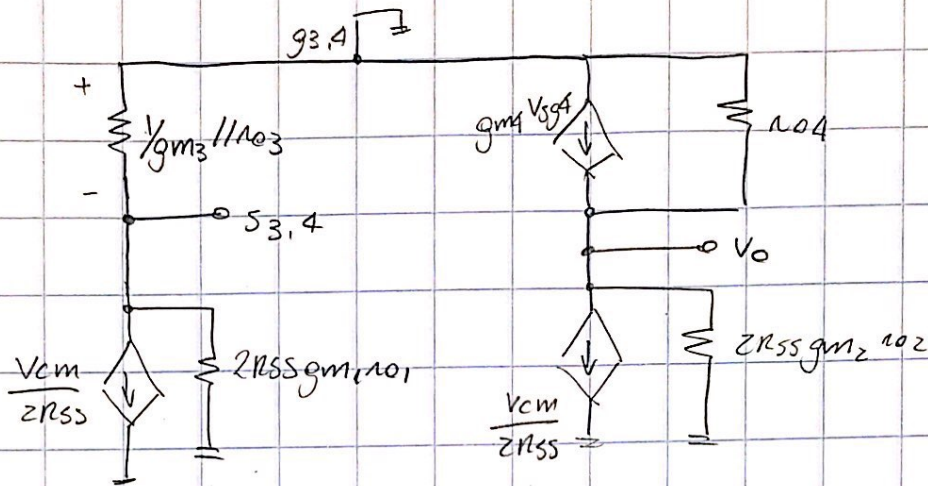 g3,4
+
1/gm3 // ro3
-
S3,4
gm4 Vsg4
ro4
Vo
Vcm
2Rss
2Rss gm1 ro1
Vcm
2Rss
2Rss gm2 ro2